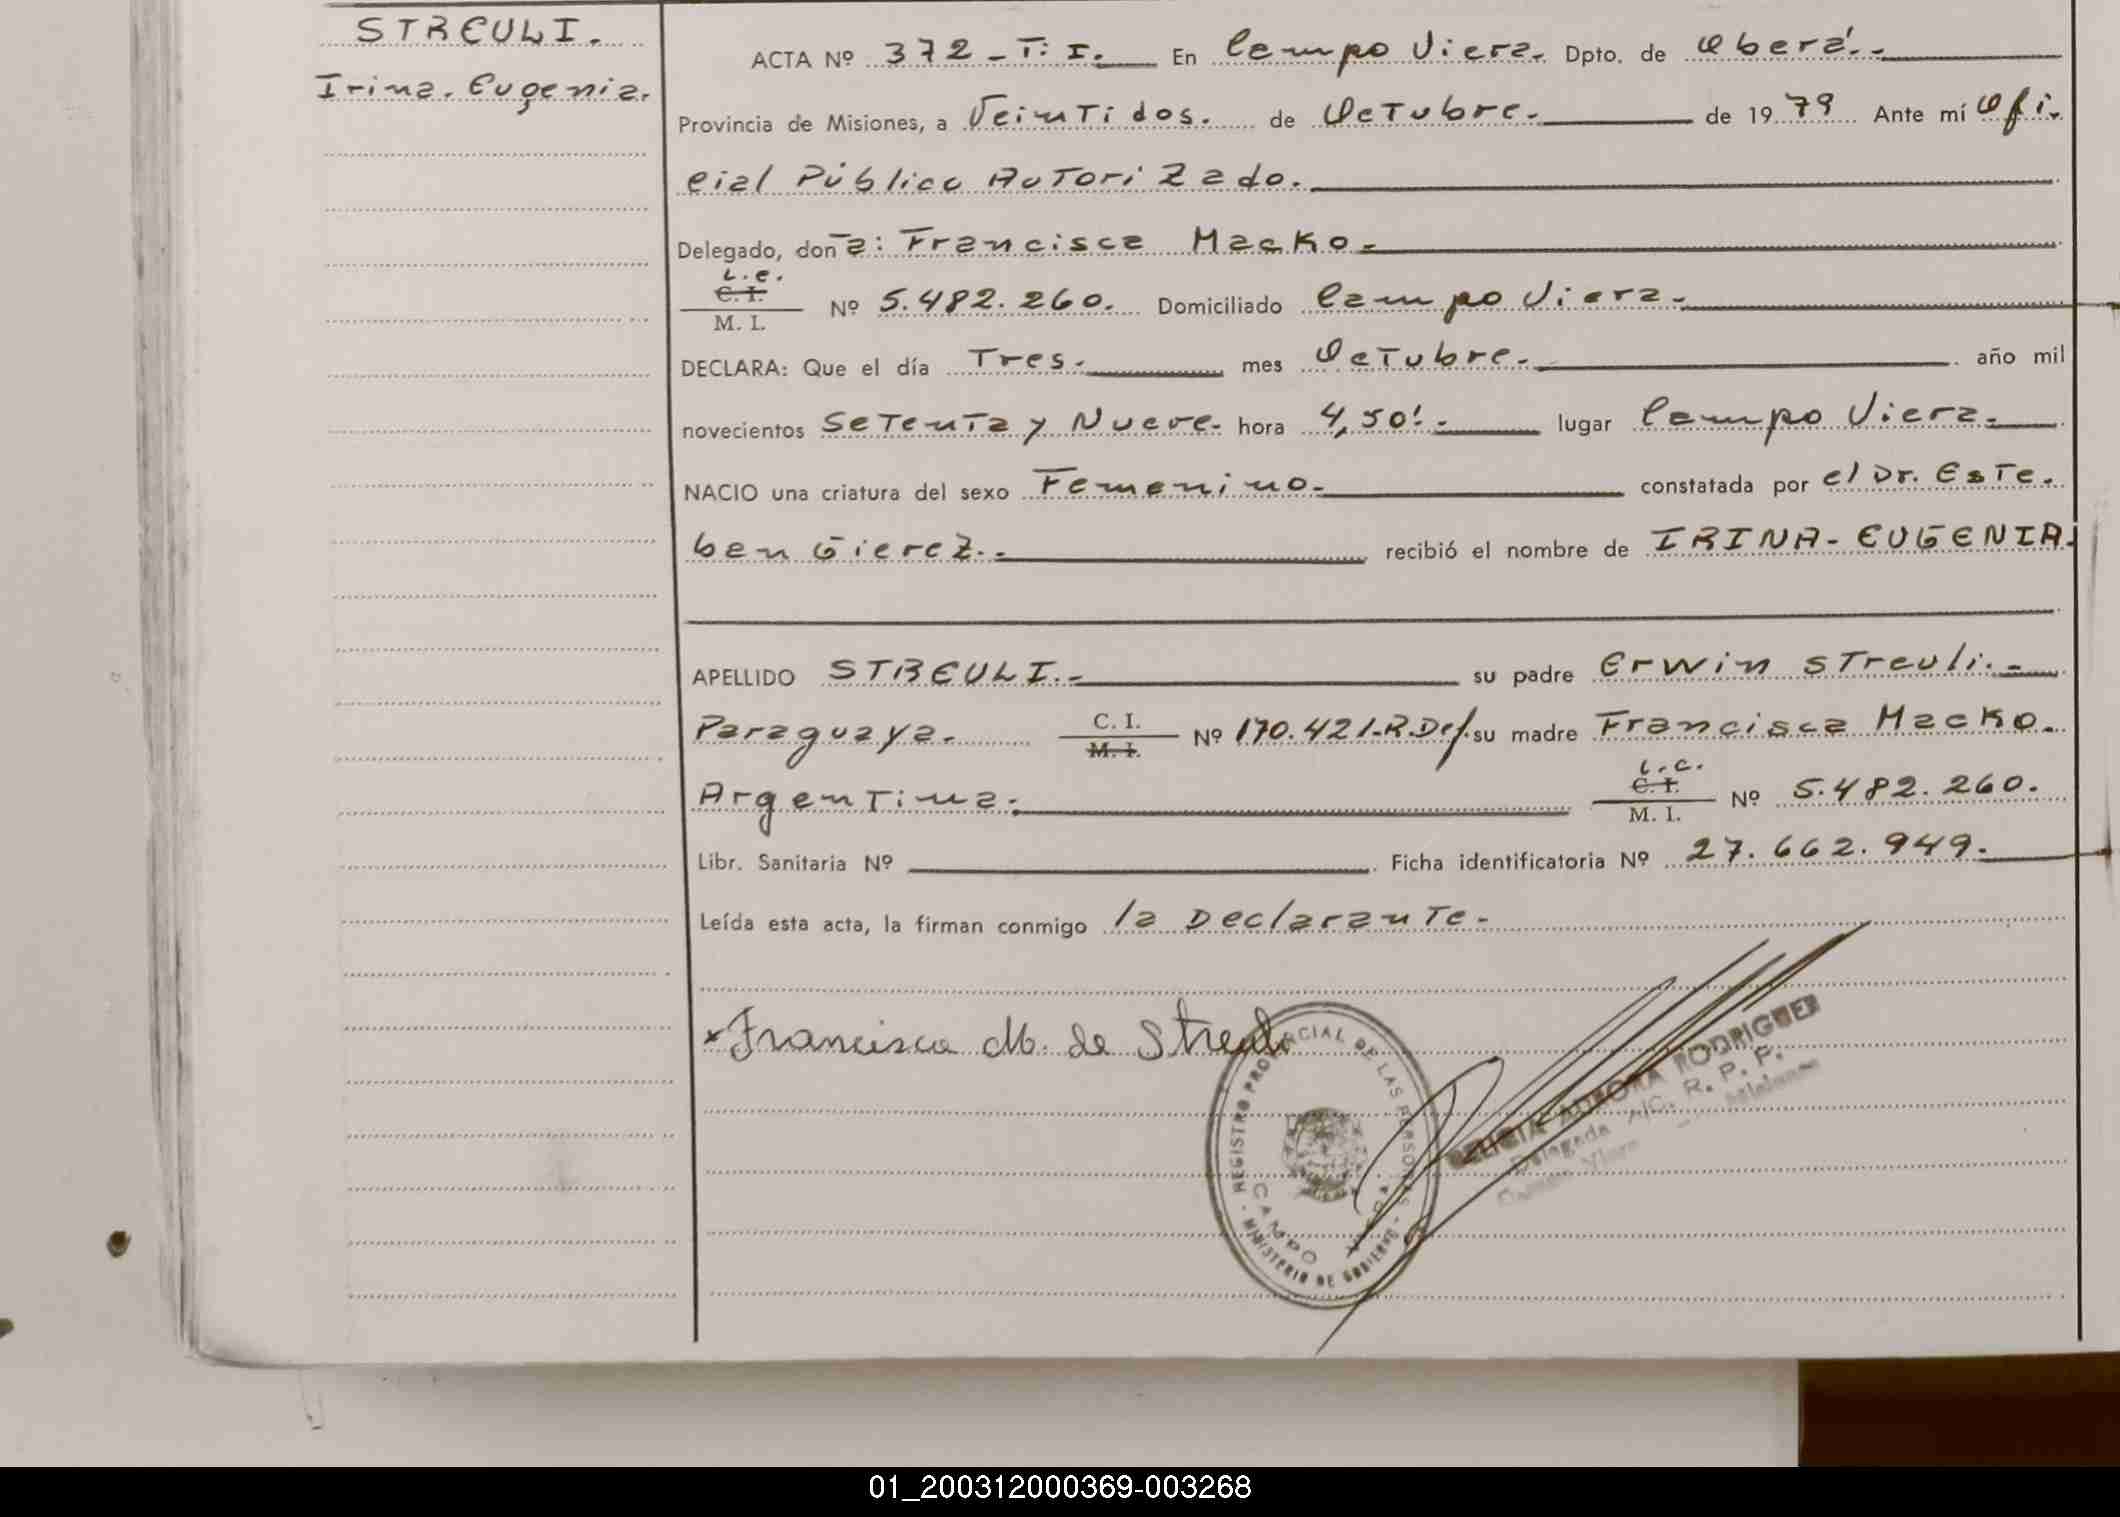 STREULI.
Irina. Eugenia.
ACTA Nº 372 - T: I. En Campo Viera. Dpto. de Oberá.-
Provincia de Misiones, a Veintidos. de Octubre. de 1979 Ante mí Ofi.
cial Público Autorizado.
Delegado, don a: Francisca Macko.-
L.C.
C. I.
M. I.
Nº 5.482.260. Domiciliado Campo Viera.-
DECLARA: Que el día Tres.- mes Octubre.- año mil
novecientos Setenta y Nueve. hora 4,50'.- lugar Campo Viera.-
NACIO una criatura del sexo Femenino.- constatada por el Dr. Este.
ben Gierez.- recibió el nombre de IRINA-EUGENIA.
APELLIDO STREULI.- su padre Erwin Streuli.-
Paraguaya. C. I. M. I. Nº 170.421-R.Def. su madre Francisca Macko.
Argentina. L.C. C. I. M. I. Nº 5.482.260.
Libr. Sanitaria Nº Ficha identificatoria Nº 27.662.949.-
Leída esta acta, la firman conmigo la Declarante.-
x Francisca M. de Streuli
REGISTRO PROVINCIAL DE LAS PERSONAS
- MINISTERIO DE GOBIERNO -
CAMPO VIERA
AURORA RODRIGUEZ
Delegada A/C. R. P. P.
Campo Viera Misiones
01_200312000369-003268